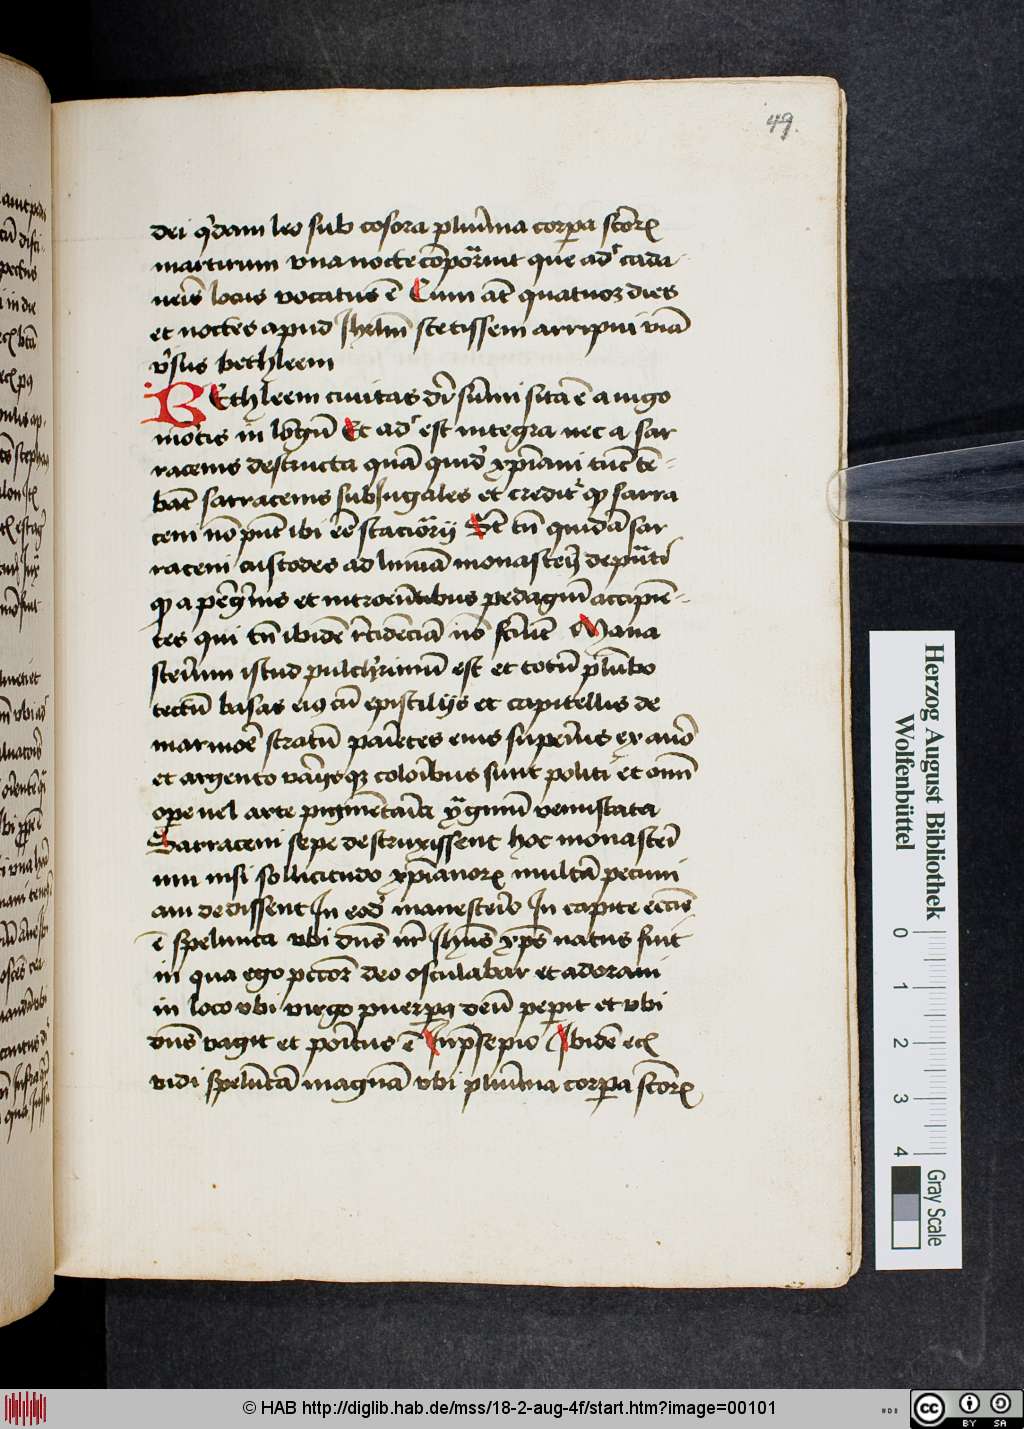 49.
dei q̉dam leo sub cosdra plurima corpa sctorꝝ
martirum vna nocte cōportauit que adͨ cada
ueris locus vocatus ē Cum at̄ quatuor dies
et noctes apud Jhrlm̄ stetissem arripui viā
v̉sus bethleem
BEthleem ciuitas dn̄i sum̄i sita ē a iugo
mōtis in lōgū Et adͨ est integra nec a sar
racenis destructa quā quid̉ xp̄iani tūc tē-
bāt sarracenis subiugales et credit̉ qꝫ sarra
ceni nō pn̄t ibi eē stacionarij St̄ tn̄ quidā sar
raceni custodes ad ianuā monasterij deputati
qꝫ a peg̉nis et introeūtibus pedagiū accipiē-
tes qui tn̄ ibidē residēciā nō faciūt Mona
sterium istud pulcherrimū est et totū plūbo
tectū basas eiꝰ cū epistilijs et capitellis de
marmore stratū parietes eius superius ex auro
et argento varijsqꝫ coloribus sunt politi et omi
ope uel arte pigmētaria ygnium venustata
Sarraceni sepe destruxissent hoc monasteri
um nisi sollicitudo xpianorꝝ multā pecuni
am dedissent In eod̉ manesterio In capite eccīe
ē spelunca vbi dn̄s nr̄ Jhus xp̄s natus fuit
in qua ego pctor deo osculabar et adoraui
in loco vbi virgo puerpa deū pepit et vbi
dn̄s vagit et positus ē In psepio Ibidē ecꝫ
vidi spelūcā magnā vbi plurima corpa sctorꝝ
Herzog August Bibliothek
Wolfenbüttel
0 1 2 3 4
Gray Scale
© HAB http://diglib.hab.de/mss/18-2-aug-4f/start.htm?image=00101
cc BY SA